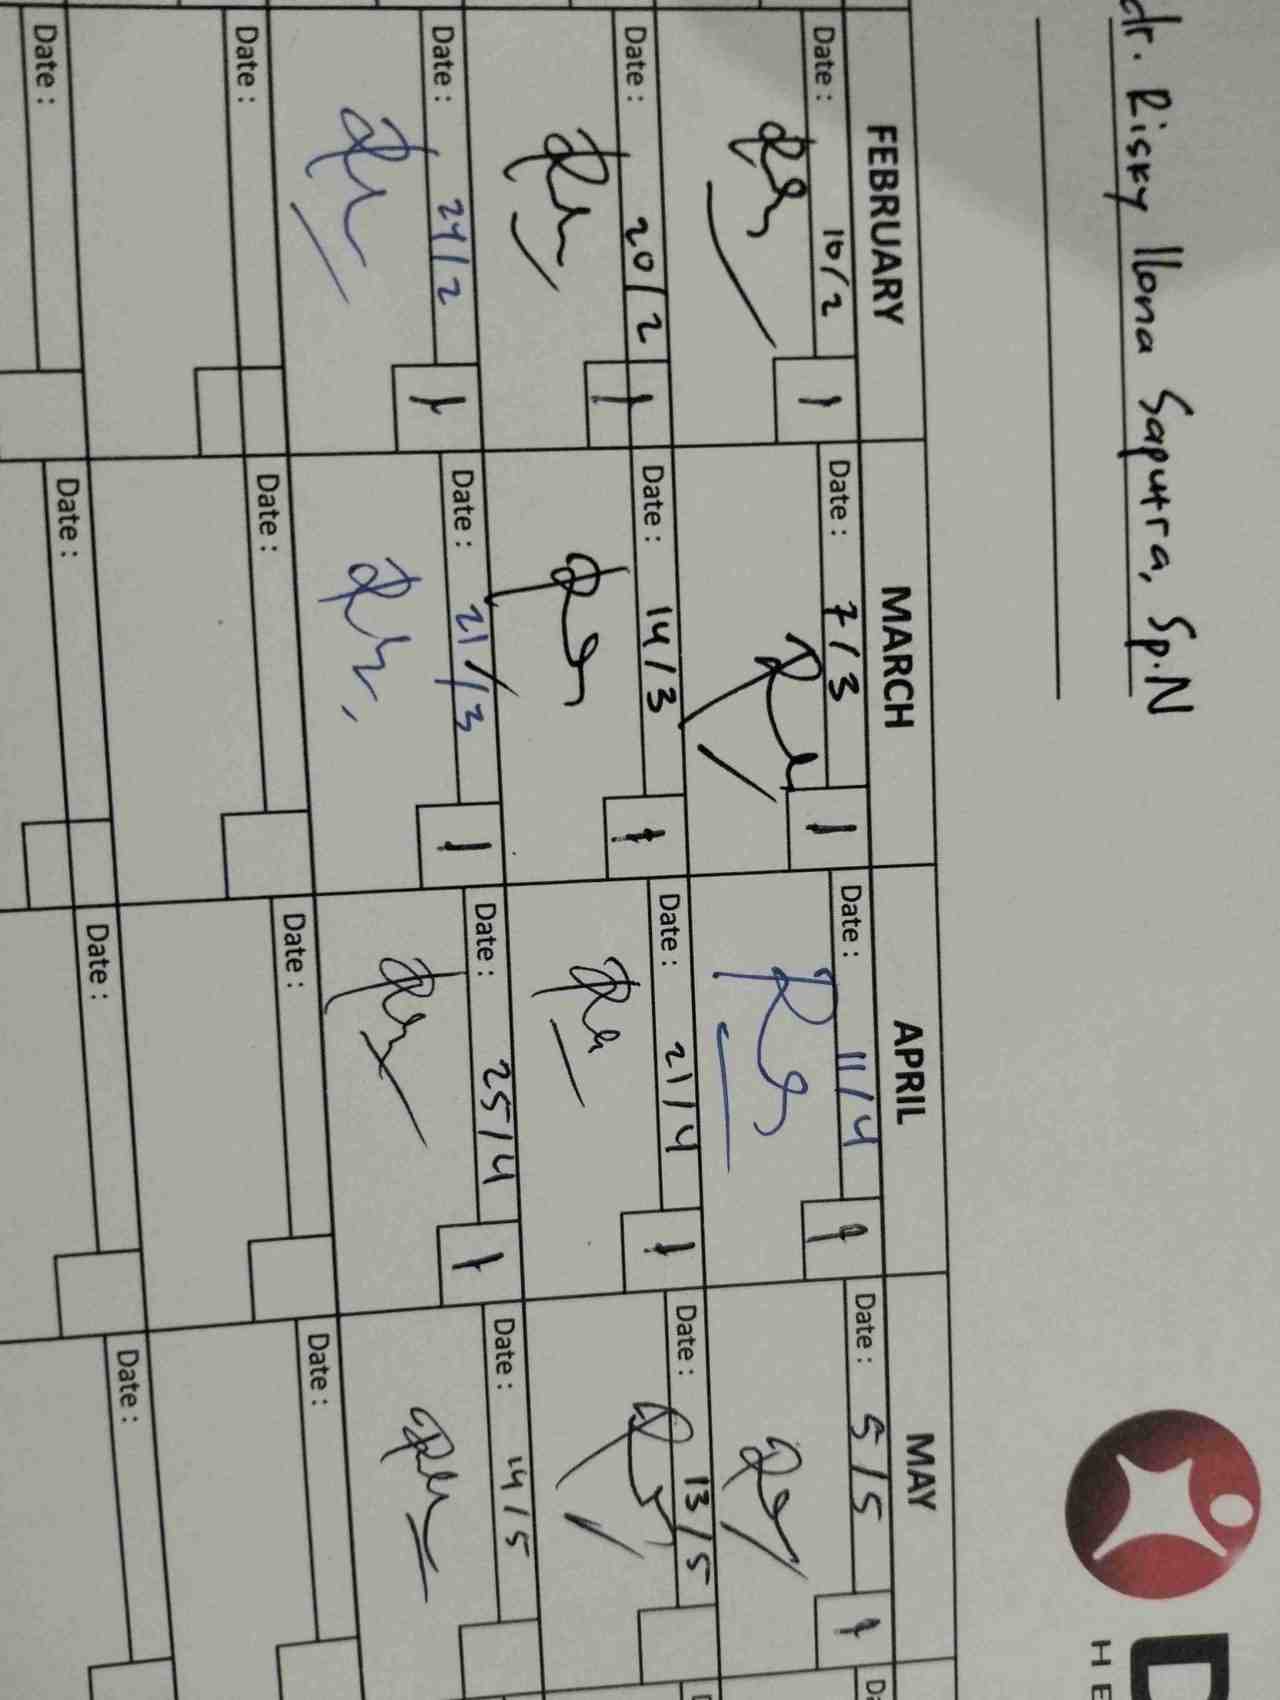 dr. Risky Ilona Saputra, Sp.N
D
HE
FEBRUARY MARCH APRIL MAY
Date : 10/2 1 Date : 7/3 1 Date : 11/4 1 Date : 5/5 1 Da
Date : 20/2 1 Date : 14/3 1 Date : 21/4 1 Date : 13/5 D
Date : 24/2 1 Date : 21/3 1 Date : 25/4 1 Date : 14/5
Date : Date : Date : Date :
Date : Date : Date : Date :